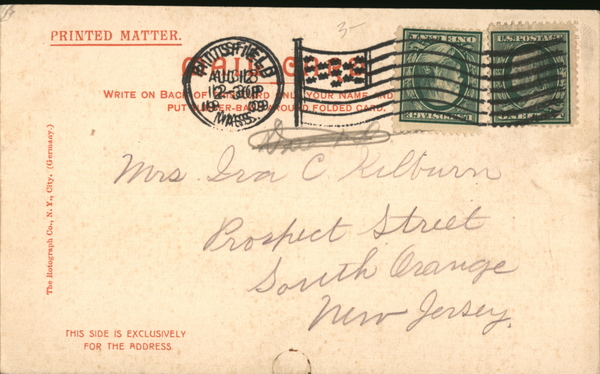 5-
PRINTED MATTER.
MAIL CARD
PITTSFIELD
AUG 12
12-30P
1909
MASS.
WRITE ON BACK OF THIS CARD ONLY YOUR NAME AND
PUT RUBBER-BAND AROUND FOLDED CARD.
ONE CENT
U.S. POSTAGE
U.S. POSTAGE
ONE CENT
Mrs. Ira C Kilburn
Prospect Street
South Orange
New Jersey.
The Rotograph Co., N.Y., City. (Germany.)
THIS SIDE IS EXCLUSIVELY
FOR THE ADDRESS